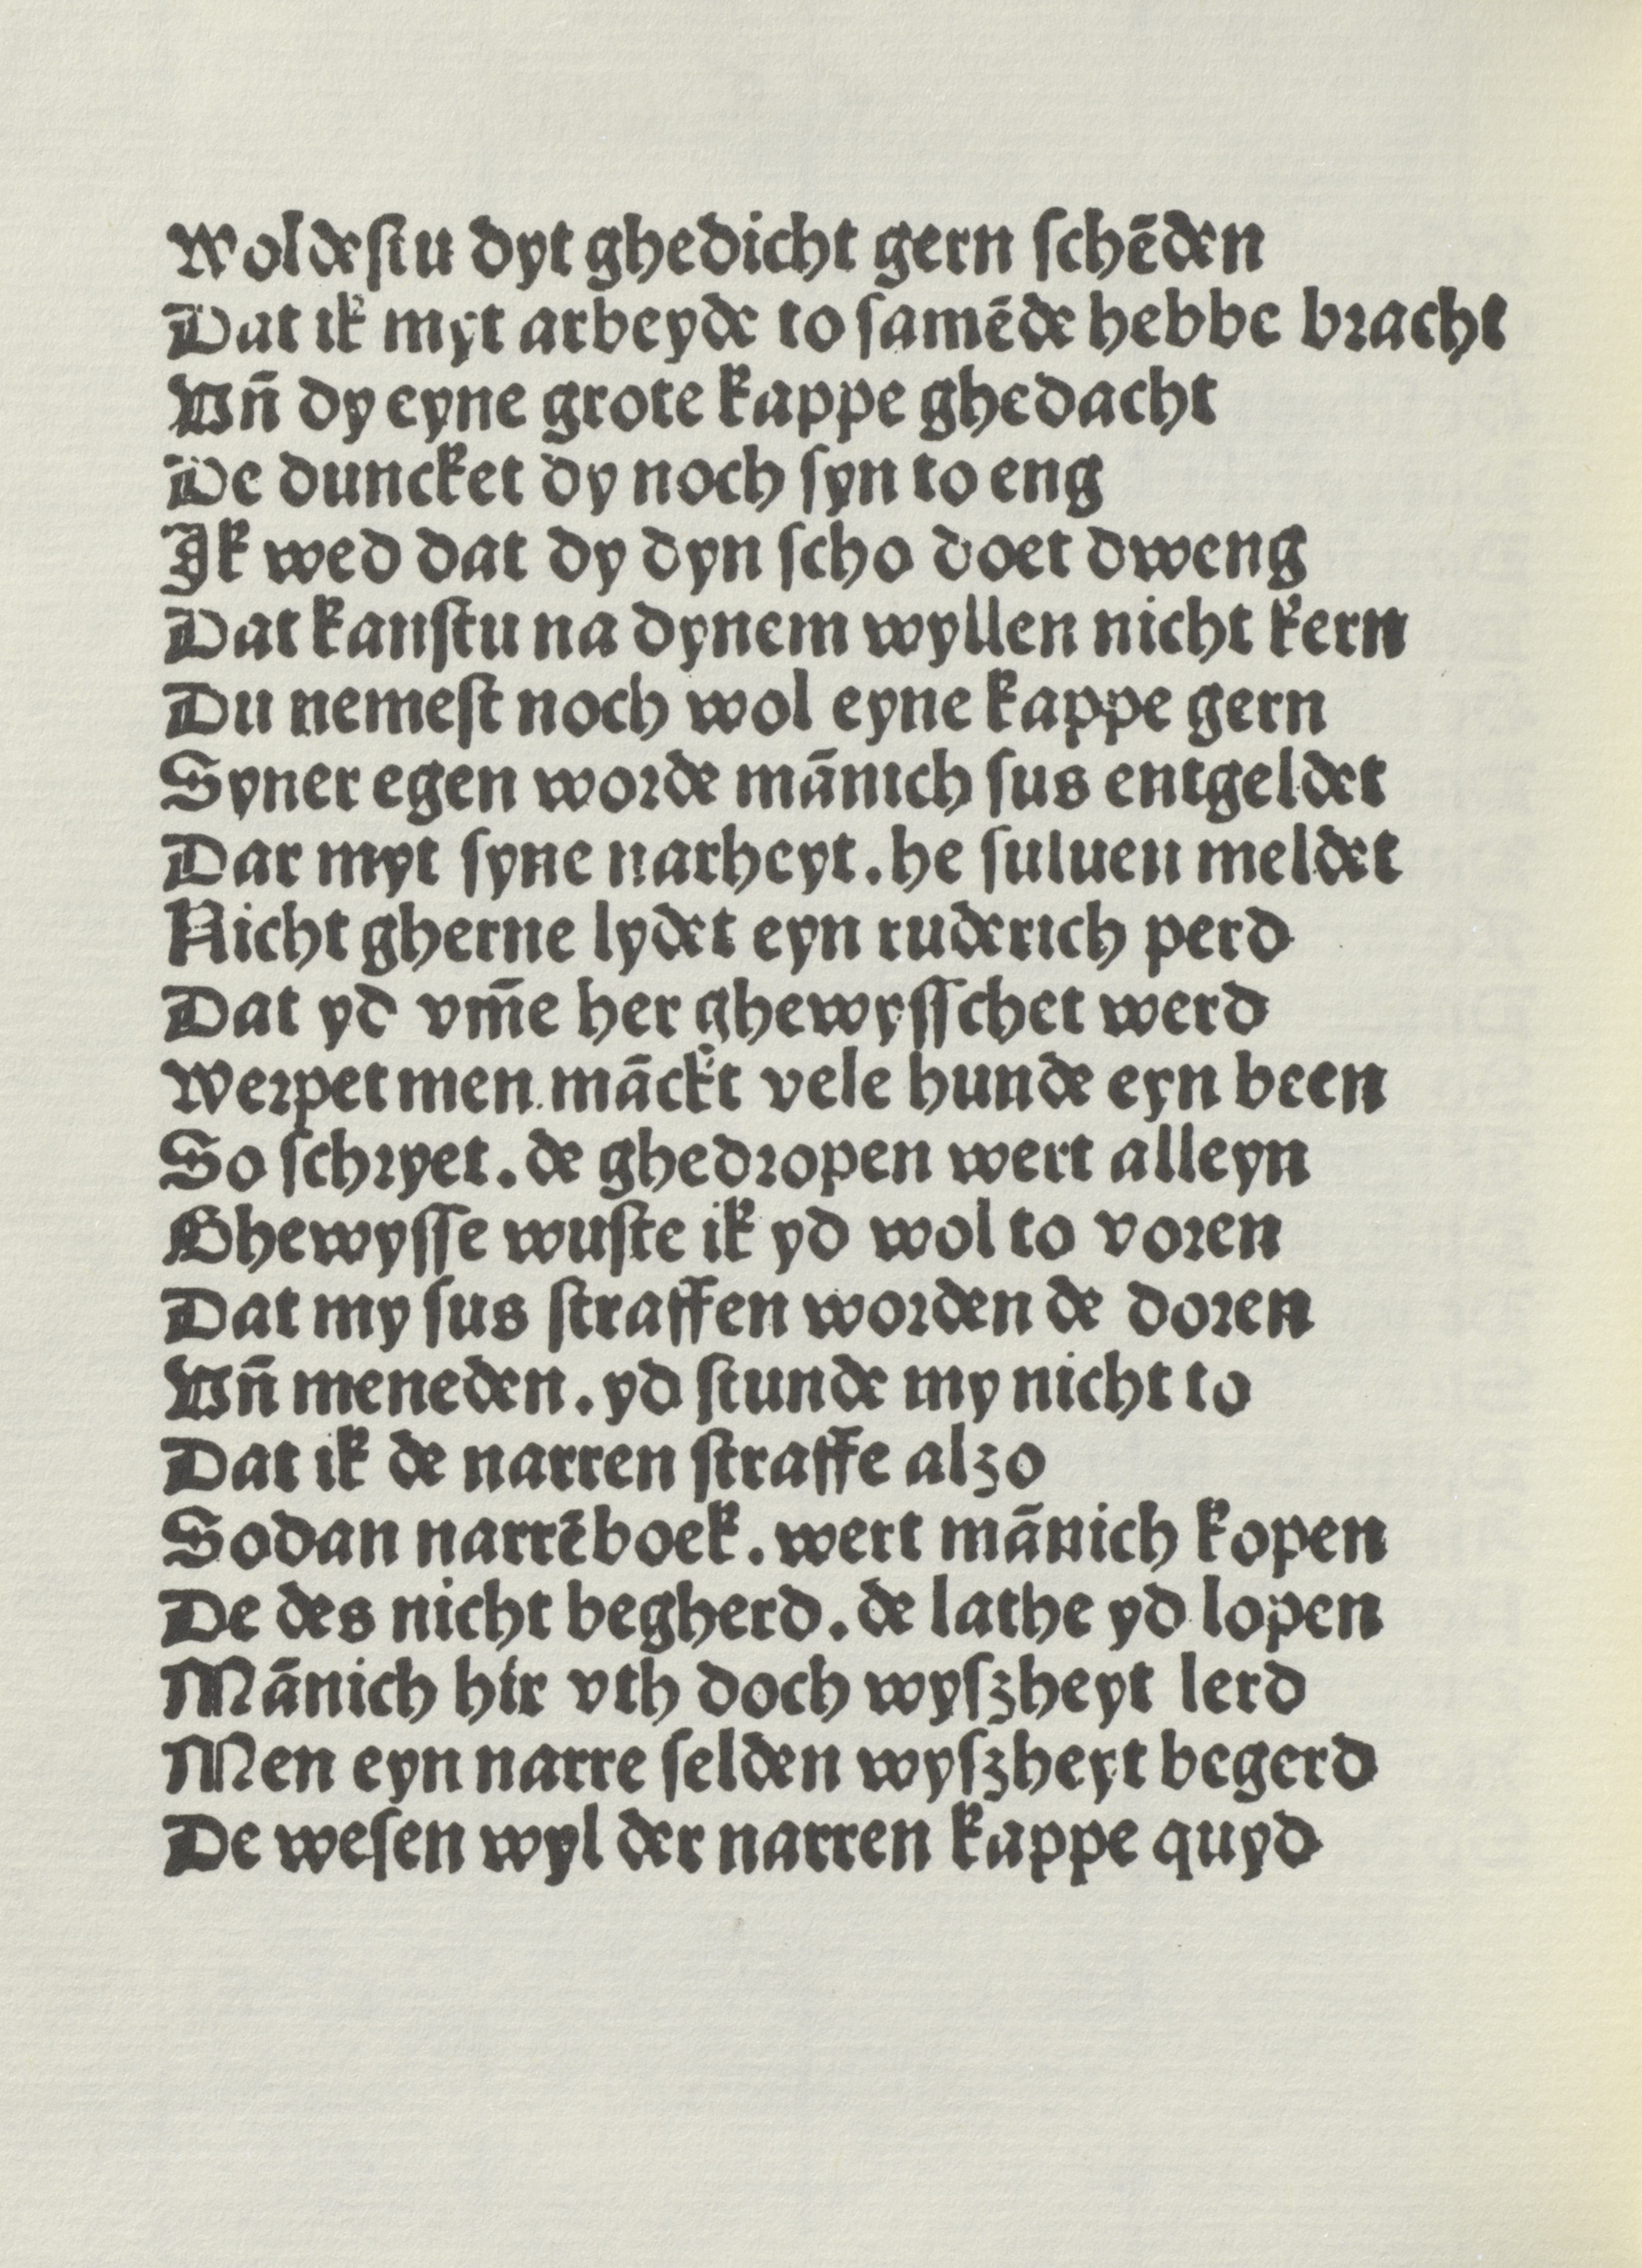 Woldeſtu dyt ghedicht gern ſchēden
Dat ik myt arbeyde to ſamēde hebbe bracht
Vn̄ dy eyne grote kappe ghedacht
De duncket dy noch ſyn to eng
Ik wed dat dy dyn ſcho doet dweng
Dat kanſtu na dynem wyllen nicht kern
Du nemeſt noch wol eyne kappe gern
Syner egen worde mānich ſus entgeldet
Dar myt ſyne narheyt. he ſuluen meldet
Nicht gherne lydet eyn ruderich perd
Dat yd vm̄e her ghewyſſchet werd
Werpet men māckt vele hunde eyn been
So ſchryet. de ghedropen wert alleyn
Ghewyſſe wuſte ik yd wol to voren
Dat my ſus ſtraffen worden de doren
Vn̄ meneden. yd ſtunde my nicht to
Dat ik de narren ſtraffe alzo
Sodan narrēboek. wert mānich kopen
De des nicht begherd. de lathe yd lopen
Mānich hir vth doch wyſzheyt lerd
Men eyn narre ſelden wyſzheyt begerd
De weſen wyl der narren kappe quyd